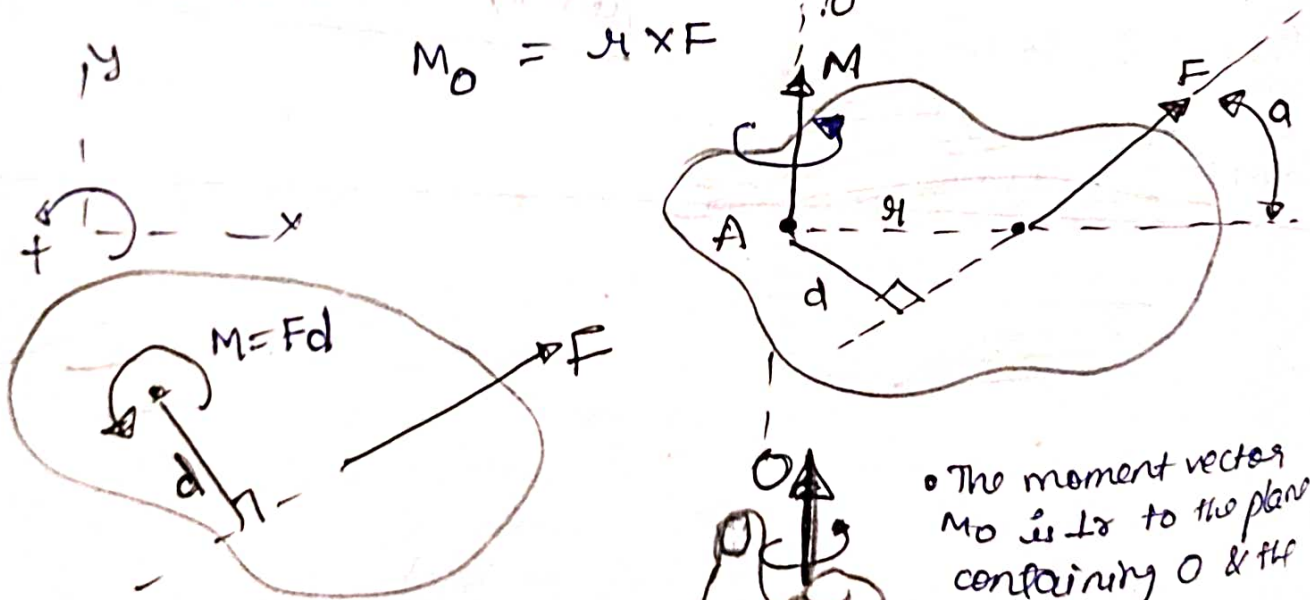 y
M₀ = r × F
:O
M
F
a
+
x
A
r
d
M = Fd
F
d
O
• The moment vector
M₀ is ⊥r to the plane
containing O & the